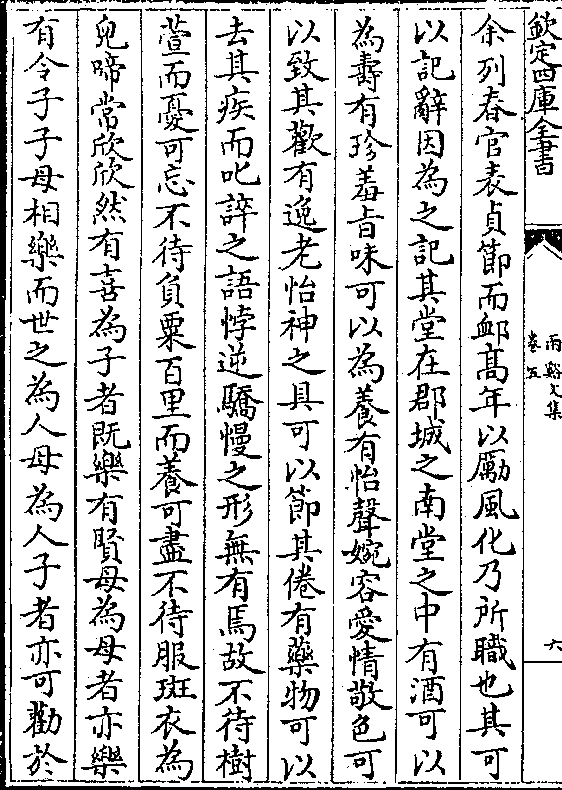 欽定四庫全書
雨谿文集
卷五
六
余列春官表貞節而䘏高年以厲風化乃所職也其可
以記辭因為之記其堂在郡城之南堂之中有酒可以
為壽有珍羞㫖味可以為養有怡聲婉容愛情敬色可
以致其歡有逸老怡神之具可以節其倦有藥物可以
去其疾而叱誶之語悖逆驕慢之形無有焉故不待樹
萱而憂可忘不待負粟百里而養可盡不待服斑衣為
兒啼常欣欣然有喜為子者既樂有賢母為母者亦樂
有令子子母相樂而世之為人母為人子者亦可勸於